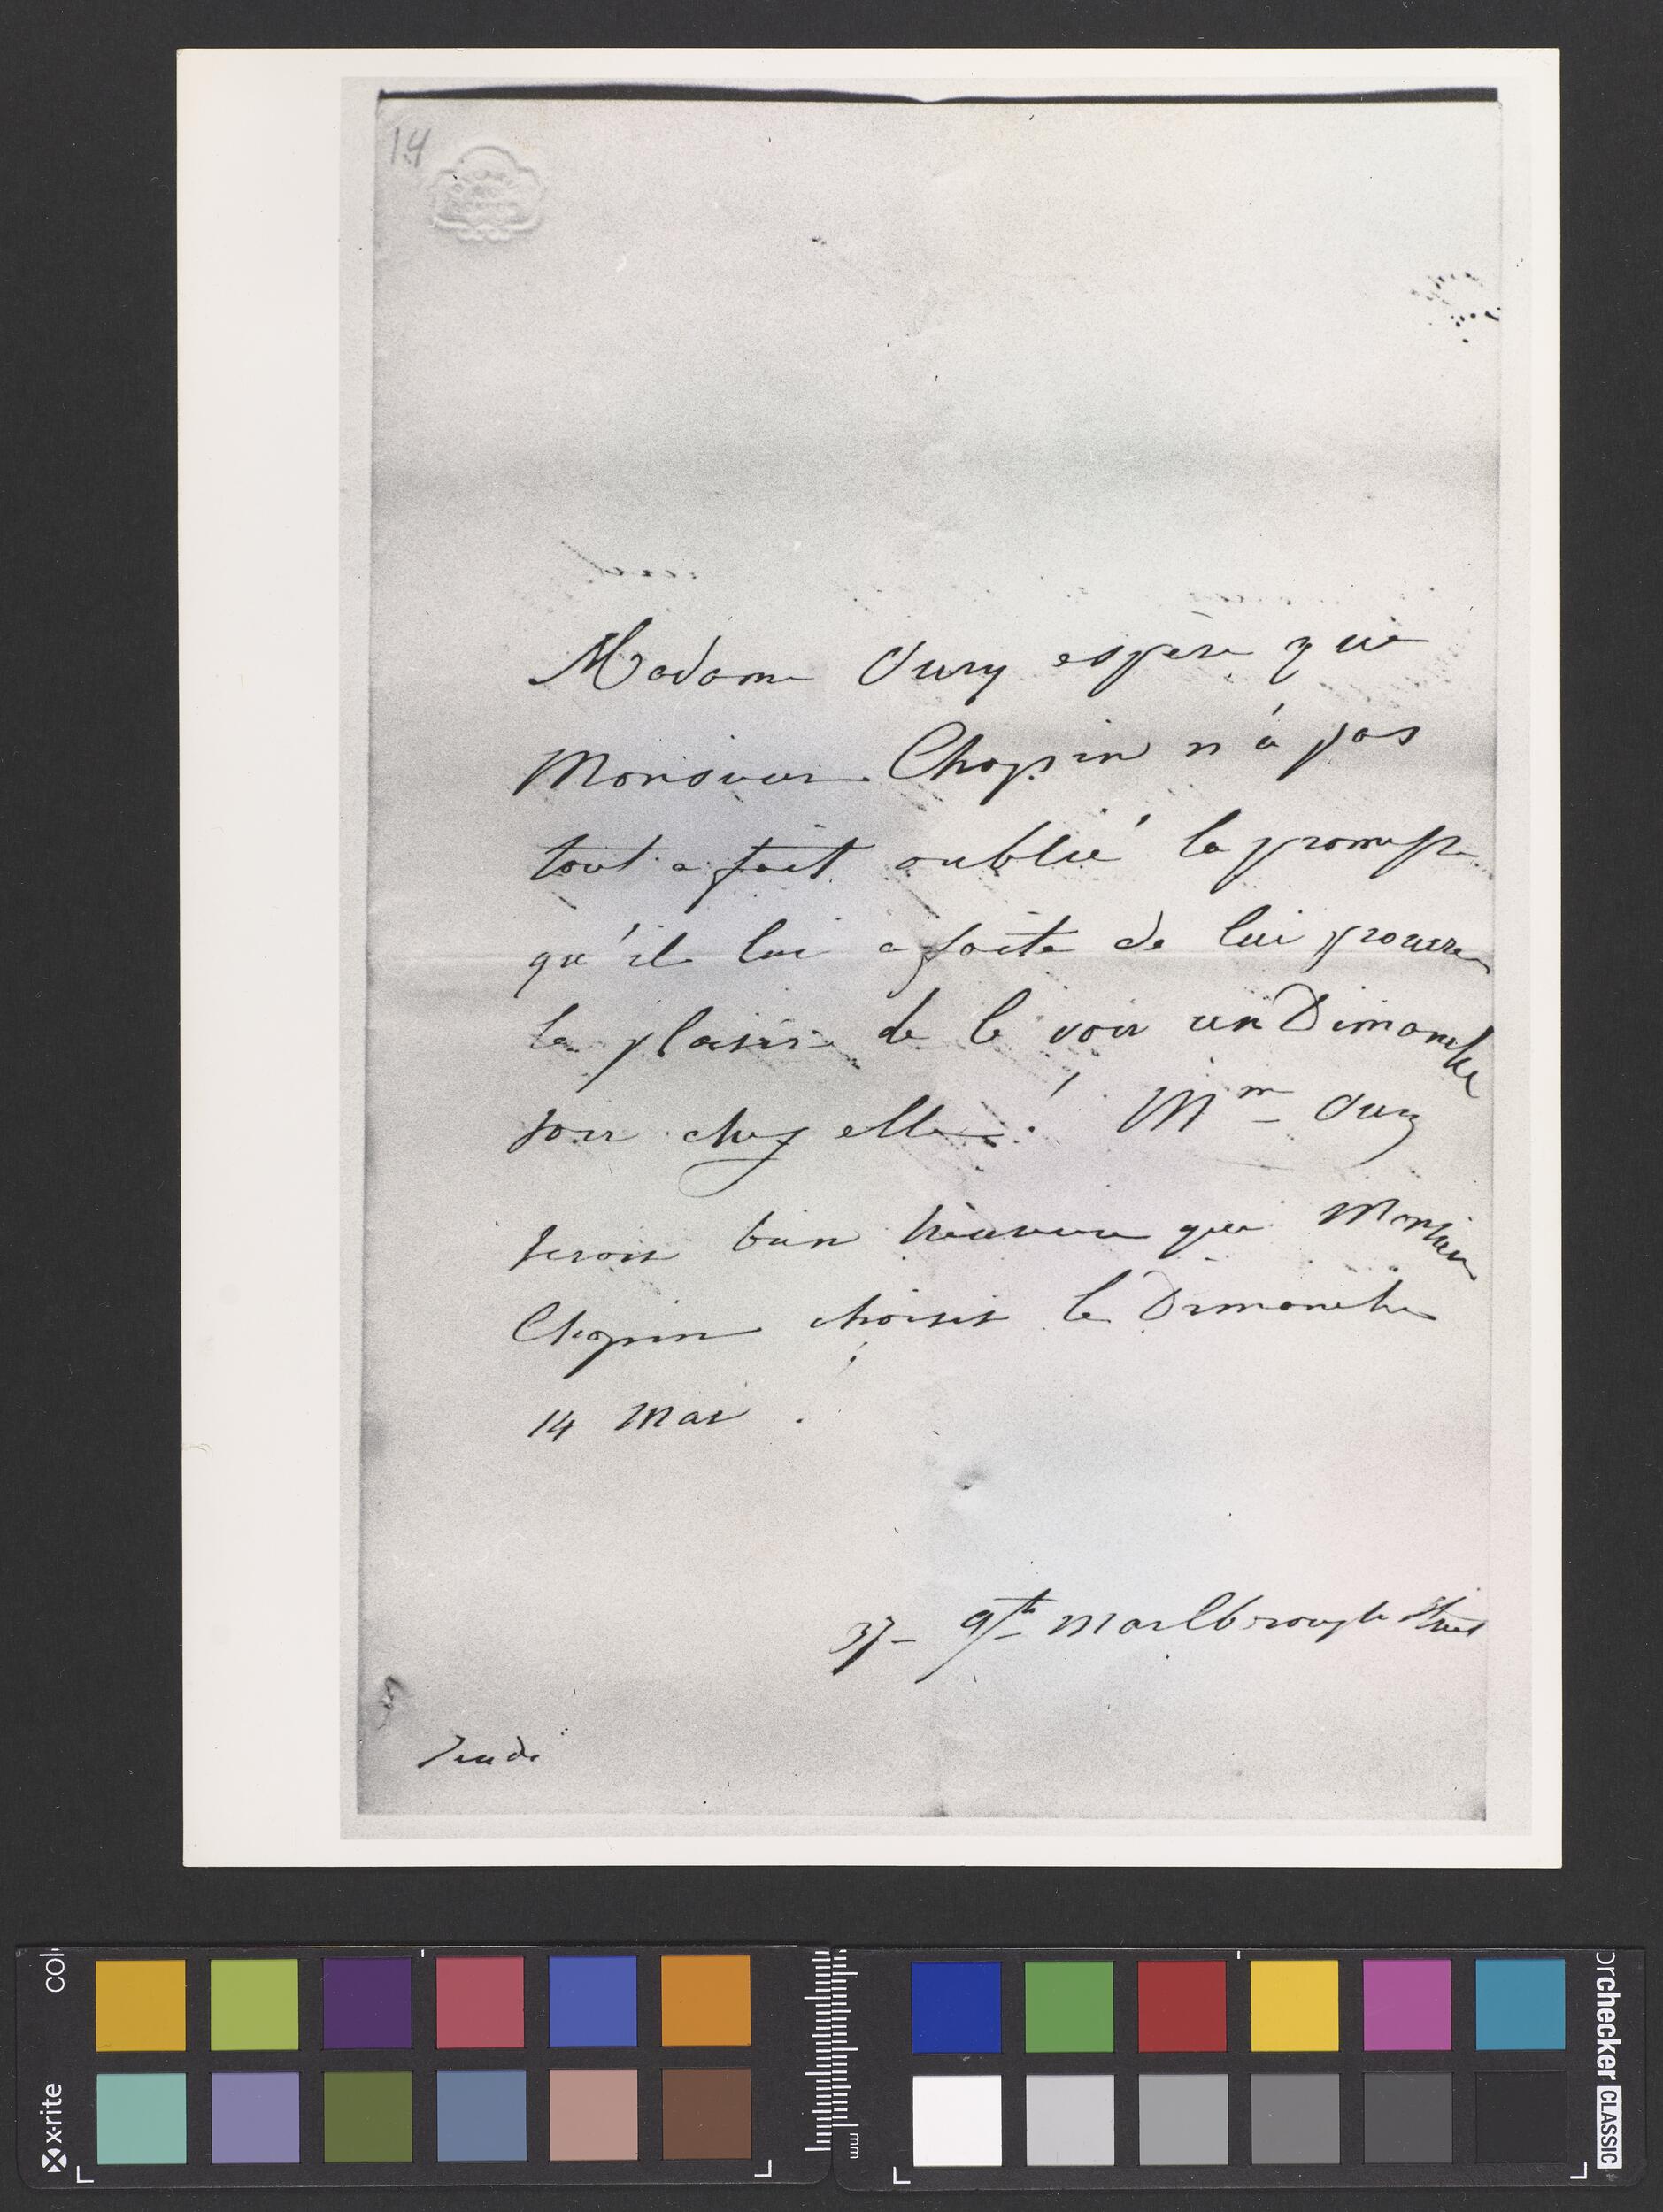 14
DE LA RUE
& Co
LONDON
Madame Oury espère que
Monsieur Chopin n'a pas
tout a fait oublié la promesse
qu'il lui a faite de lui procurer
le plaisir de le voir un Dimanche
soir chez elle! Mme Oury
serait bien heureuse que Monsieur
Chopin choisit le Dimanche
14 Mai.
37- Gt Marlborough Street
Jeudi
x-rite
mm
checker CLASSIC